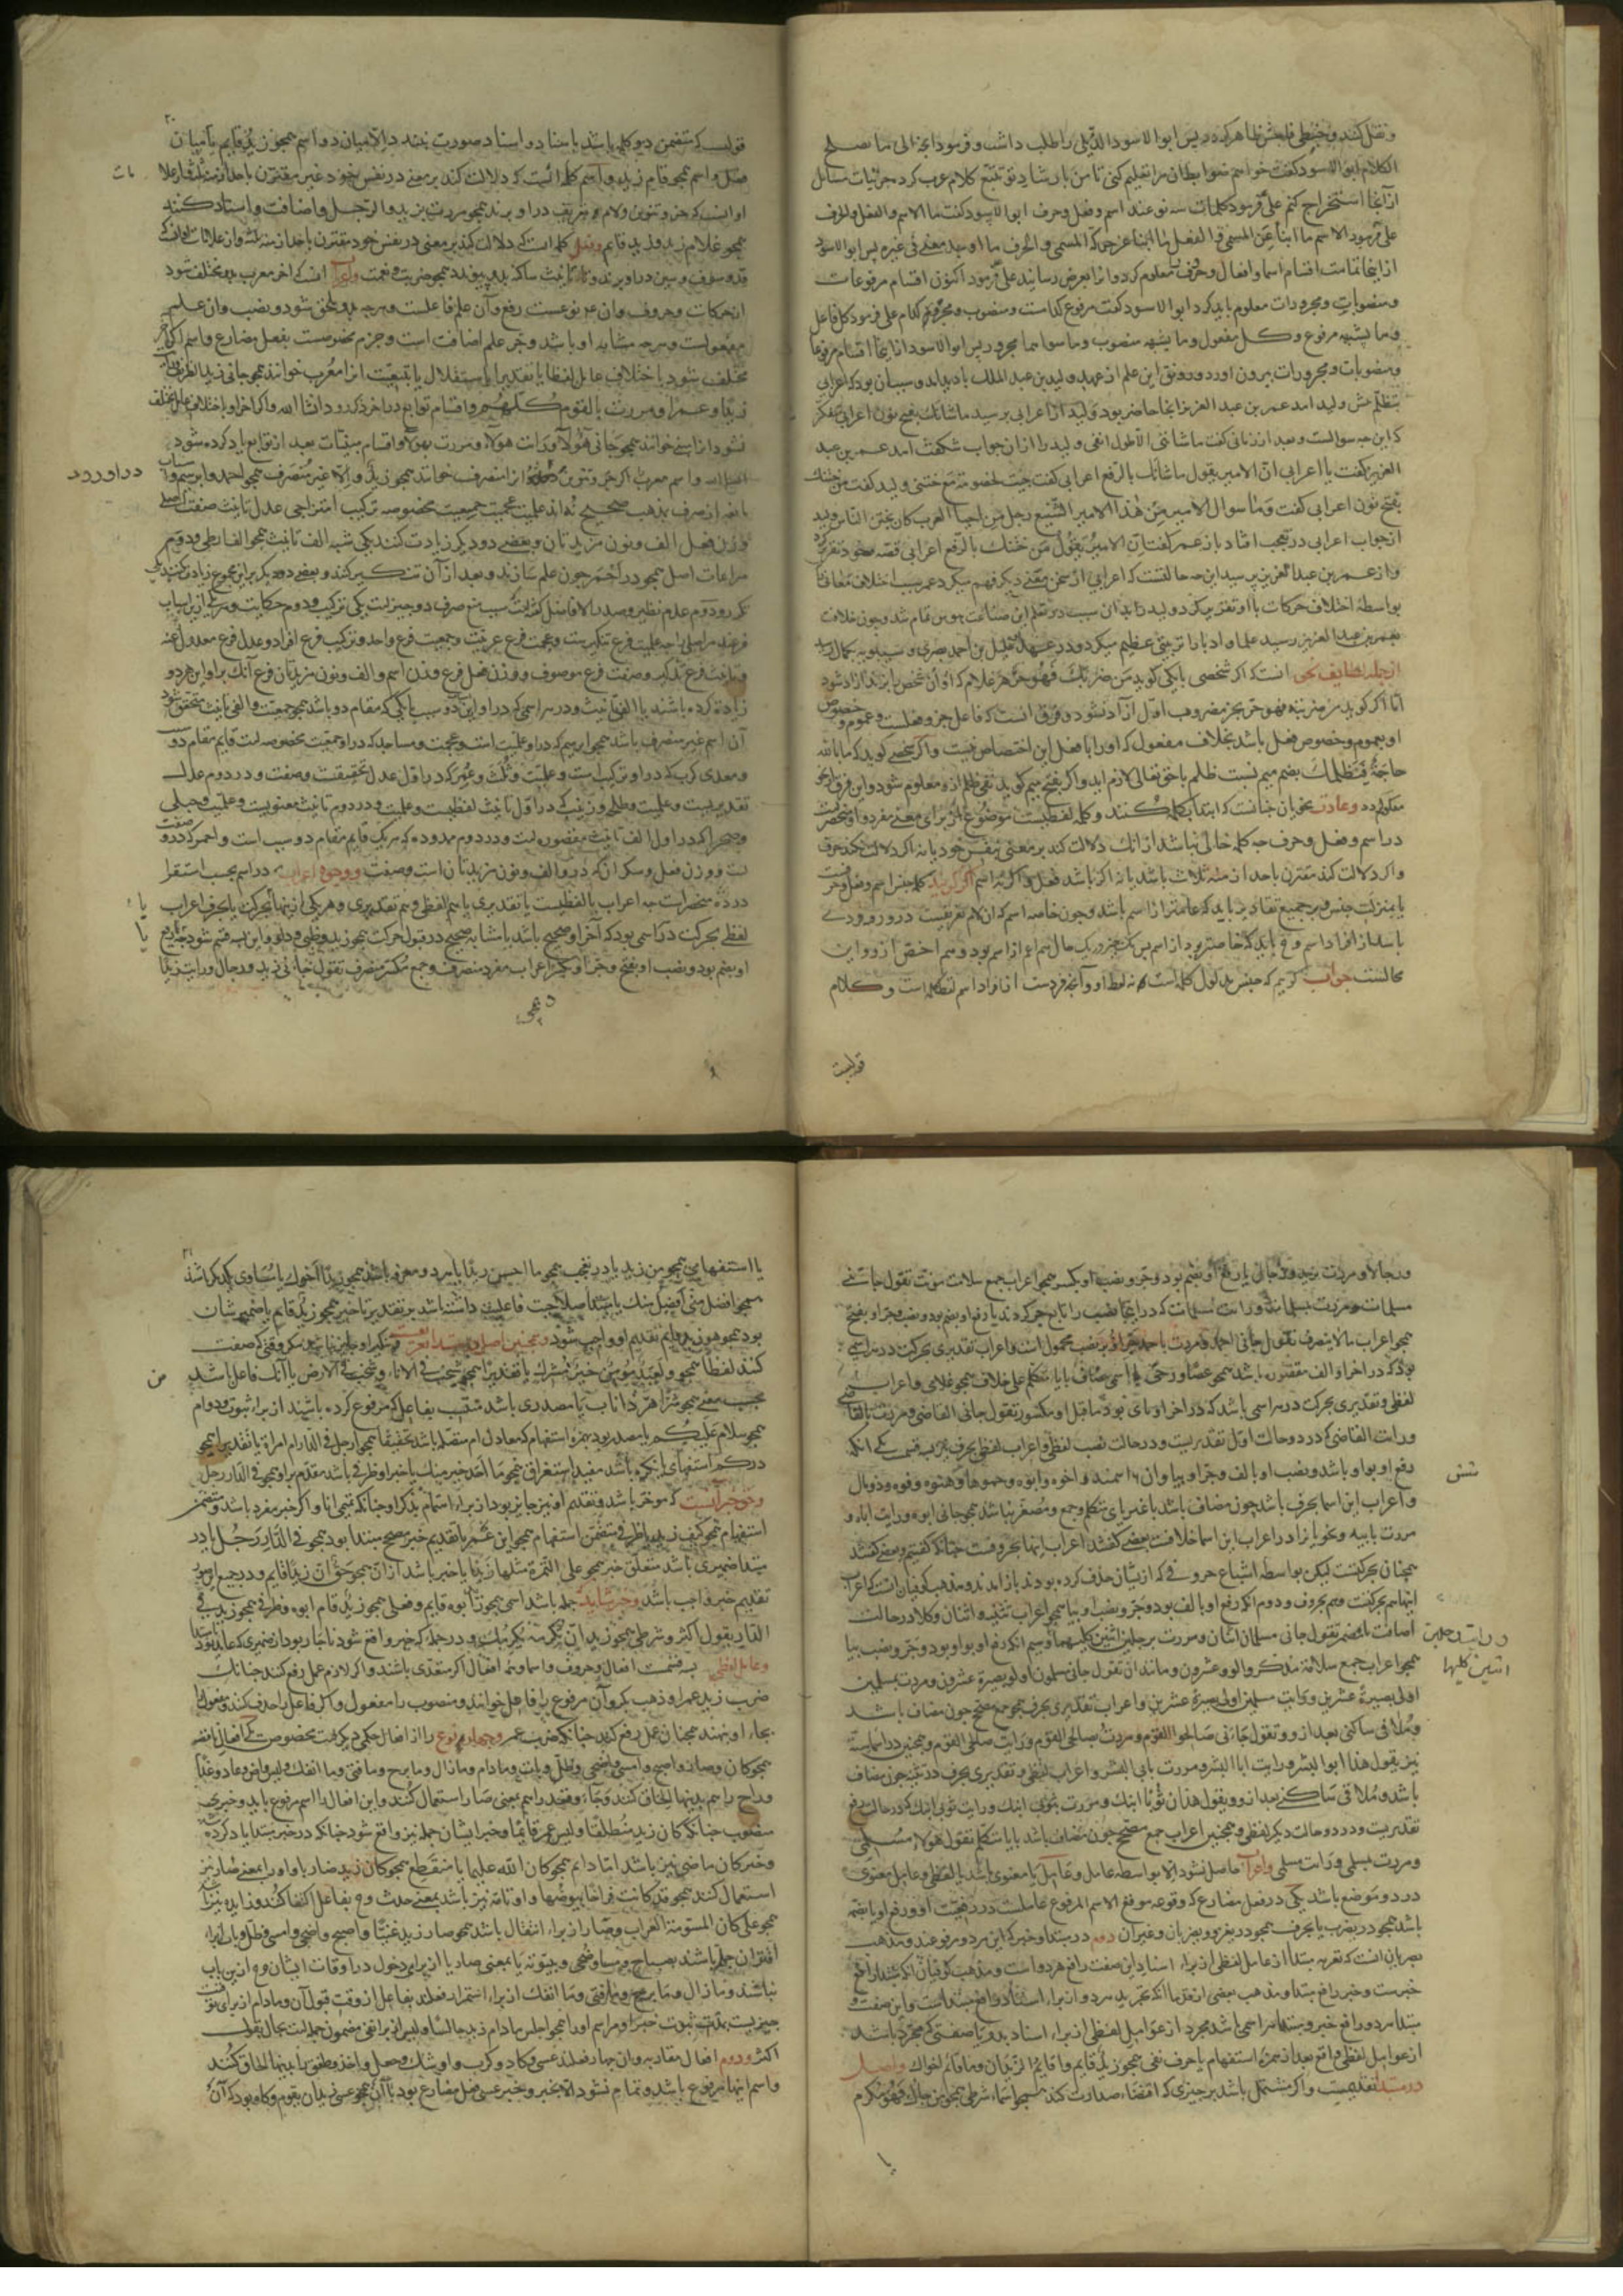 و نقل کنند و خبطی فاحش ظاهر کردد پس ابو الاسود الدیلی را طلب داشت و فرمود انح الی ما تصلح
الکلام ابو الاسود کفت خواهم ضوابط ان مرا تعلیم کنی تا من بارشاد تو تتبع کلام عرب کرده جزئیات مسائل
از آنها استخراج کنم علی فرمود کلمات سه نوعند اسم و فعل و حرف ابو الاسود کفت ما الاسم و الفعل و الحرف
علی فرمود الاسم ما انبأ عن المسمی و الفعل ما انبأ عن حرکة المسمی و الحرف ما اوجد معنی فی غیره پس ابو الاسود
از اینجا تمامت اقسام اسما و افعال و حروف را معلوم کرد و انرا بعرض رسانید علی فرمود اکنون اقسام مرفوعات
و منصوبات و مجرورات معلوم باید کرد ابو الاسود کفت مرفوع کدامست و منصوب و مجرور کدام علی فرمود کل فاعل
و ما یشبهه مرفوع و کل مفعول و ما یشبهه منصوب و ما سواهما مجرور پس ابو الاسود از اینها اقسام مرفوعا
و منصوبات و مجرورات بیرون اورد و رونق این علم از عهد ولید بن عبد الملک بادید امد و سبب ان بود که اعرابی
بتظلم پیش ولید امد عمر بن عبد العزیز انجا حاضر بود ولید از اعرابی پرسید ما شانک بفتح نون اعرابی متفکر
که این چه سوالست و بعد از زمانی کفت ما شاننی الا طول انفی ولید را از ان جواب شکفت امد عمر بن عبد
العزیز کفت یا اعرابی ان الامیر یقول ما شانک بالرفع اعرابی کفت جیت لخصومة مع ختنی ولید کفت من ختنک
بفتح نون اعرابی کفت و ما سوال الامیر من هذا الامر الشنیع رجل من احیا العرب کان یختن الناس ولید
از جواب اعرابی در تعجب افتاد باز عمر کفت ان الامیر یقول من ختنک بالرفع اعرابی قصه خود تقریر کرد
و از عمر بن عبد العزیز پرسید این چه حالتست که اعرابی از سخن معنی دیکر فهم میکرد عمر سبب اختلاف معانی
بواسطه اختلاف حرکات با او تقریر کرد ولید
بعمر بن عبد العزیز رسید علما و ادبا را تربیتی عظیم میکرد و در عهد خلیل بن احمد بصری و سیبویه بکمال رسید
از جمله لطایف نحو انست که اکر شخصی با یکی کوید من ضربک فهو حر هر غلام که او ان شخص را بزند ازاد شود
اما اکر کوید من ضربته فهو حر بجز مضروب اول ازاد نشود و فرق انست که فاعل جزو فعلست و عموم و خصوص
او بعموم و خصوص فعل باشد بخلاف مفعول که او را با فعل این اختصاص نیست و اکر شخصی کوید که ما بالله
حاجة فیظلمک بضم میم نسبت ظلم با حق تعالی لازم اید و اکر بفتح میم کوید نفی ظلم ازو معلوم شود و این فرق از نحو
معلوم کردد و عادت نحویان چنانست که ابتدا بکلمه کنند و کلمه لفظیست موضوع از برای معنی مفرد و او منحصرست
در اسم و فعل و حرف چه کلمه خالی نباشد از انک دلالت کند بر معنی بنفس خود یا نه اکر دلالت نکند حرف
و اکر دلالت کند مقترن باحد ازمنه ثلاث باشد یا نه اکر باشد فعل و اکر نه اسم اکر کویند کلمه جنس اسم و فعل و حرفست
محالست جواب کوییم که جنس مدلول کلمه است نه لفظ او و آنچه فردست از افراد اسم لفظ کلمه است و کلام
قولیست
۲۰
قولیست که متضمن دو کلمه باشد باسناد و اسناد صورت نبندد الا میان دو اسم همچو زید قایم یا میان
فعل و اسم همچو قام زید و اسم کلمه ایست که دلالت کند بر معنی در نفس خود غیر مقترن باحد ازمنه ثلاثه از علا
مات
او انست که جر و تنوین و لام تعریف در او برند همچو مررت بزید و الرجل و اضافت و اسناد کنند
همچو غلام زید و زید قایم و فعل کلمه ایست که دلالت کند بر معنی در نفس خود مقترن باحد ازمنه ثلثه و از علامات او انست که
قد و سوف و سین در او برند و تاء تانیث ساکنه بدو پیوندد همچو ضربت و نعمت و معرب انست که اخر معرب بدو مختلف شود
از حرکات و حروف و ان نوعست رفع و آن علم فاعلست و هرچه بدو ملحق شود و نصب و ان علم
مفعولست و هرچه مشابه او باشد و جر علم اضافت است و جزم مخصوصست بفعل مضارع و اسم اکر آخر
مختلف شود باختلاف عامل لفظا یا تقدیرا باستقلال یا بتبعیت انرا معرب خوانند همچو جانی زید الظریف و رایت
زیدا و عمرا و مررت بالقوم کلهم و اقسام توابع در اخر ذکر رود انشا الله و اکر اخر او باختلاف عامل مختلف
نشود انرا مبنی خوانند همچو جانی هؤلاء و رایت هؤلاء و مررت بهؤلاء و اقسام مبنیات بعد از توابع یاد کرده شود
انشا الله و اسم معرب اکر جر و تنوین در او رود انرا منصرف خوانند همچو زید و الا غیر منصرف همچو احمد و ابرهیم و اسباب
در او رود
مانعه از صرف بمذهب صحیح نه اند علمیت عجمیت جمعیت مخصوصه ترکیب امتزاجی عدل تانیث صفت اصلی
وزن فعل الف و نون مزیدتان و بعضی دو دیکر زیادت کنند یکی شبه الف تانیث همچو الف ارطی و دوم
مراعات اصل همچو در احمر چون علم سازند و بعد از آن تنکیر کنند
آن اسم غیر منصرف باشد همچو ابرهیم که در او علمیت است و عجمت و مساجد که در او جمعیت مخصوصه است قایم مقام دو سبب
و معدی کرب که در او ترکیب است و علمیت و ثلث و عمر که در اول عدل تحقیقیست و صفت و در دوم عدل
تقدیریست و علمیت و طلحه و زینب که در اول تانیث لفظیست و علمیت و در دوم تانیث معنویست و علمیت و حبلی
و صحرا که در اول الف تانیث مقصوره است و در دوم ممدوده که هر یک قایم مقام دو سبب است و احمر که درو صفت
ست و وزن فعل و سکران که درو الف و نون مزیدتان است و صفت و وجوه اعراب در اسم بحسب استقرا
در ده منحصر است چه اعراب یا لفظیست یا تقدیری یا هم لفظی و هم تقدیری و هر یکی ازینها یا بحرکت یا بحرف اعراب
یا
لفظی بحرکت در اسمی بود که آخر او صحیح باشد یا مشابه صحیح در قبول حرکت همچو زید و ظبی و دلو و این سه قسم شود
یا
او بضم بود و نصب او بفتح و جر او بکسر همچو اعراب مفرد منصرف و جمع مکسر منصرف تقول جانی زید و رجال و رایت زیدا
و رجالا و مررت بزید و رجال یا رفع او بضم بود و جر و نصب او بکسر همچو اعراب جمع سلامت مونث تقول جاتنی
مسلمات و مررت بمسلمات و رایت مسلمات که در اینجا نصب را تابع جر کردند یا رفع او بضم بود و نصب و جر او بفتح
همچو اعراب ما لا ینصرف تقول جانی احمد و مررت باحمد جر او بر نصب محمول است و اعراب تقدیری بحرکت در هر اسمی
بود که در اخر او الف مقصوره باشد همچو عصا و رحی یا اسمی مضاف با یاء متکلم علی خلاف همچو غلامی و اعراب
لفظی و تقدیری بحرکت در هر اسمی باشد که در اخر او یای بود ما قبل او مکسور تقول جانی القاضی و مررت بالقاضی
و رایت القاضی که در دو حالت اول تقدیریست و در حالت نصب لفظی و اعراب لفظی بحرف بر سه قسمست یکی انکه
رفع او بواو باشد و نصب او بالف و جر او بیا و ان ۶ اسمند و اخوه و ابوه و حموها و هنوه و فوه و ذو مال
شش
و اعراب این اسما بحرف باشد چون مضاف باشد با غیر یای متکلم و جمع و مصغر نباشد همچو جانی ابوه و رایت اباه و
مررت بابیه و نحویان را در اعراب این اسما خلافست بعضی کفتند اعراب اینها بحروفست چنانکه کفتیم و بعضی کفتند
همچنان بحرکتست لیکن بواسطه اشباع حروفی که ازیشان حذف کرده بودند باز امدند و مذهب کوفیان انست که اعراب
اینها هم بحرکتست و هم بحروف و دوم انکه رفع او بالف بود و جر و نصب او بیا همچو اعراب تثنیه و اثنان و کلا در حالت
اضافت بمضمر تقول جانی مسلمان اثنان و مررت برجلین اثنین کلیهما و سیم انکه رفع او بواو بود و جر و نصب بیا
و رایت رجلین
اثنین کلیهما
همچو اعراب جمع سلامة مذکر و الو و عشرون و مانند ان تقول جانی مسلمون اولو بصیرة عشرون و مررت بمسلمین
اولی بصیرة عشرین و رایت مسلمین اولی بصیرة عشرین و اعراب تقدیری بحرف همچو جمع مصحح چون مضاف باشد
و ملاقی ساکنی بعد ازو و تقول جاءنی صالحوا القوم و مررت بصالحی القوم و رایت صالحی القوم و همچنین در اسماء ستة
نیز یقول هذا ابو البشر و رایت ابا البشر و مررت بابی البشر و اعراب لفظی و تقدیری بحرف در تثنیه چون مضاف
باشد و ملاقی ساکنی بعد ازو و یقول هذان ثوبا ابنک و مررت بثوبی ابنک و رایت ثوبی ابنک که در حالت رفع
تقدیریست و در دو حالت دیکر لفظی و همچنین اعراب جمع مصحح چون مضاف باشد بایاء متکلم تقول هولاء مسلمی
و مررت بمسلمی و رایت مسلمی و اعراب حاصل نشود الا بواسطه عامل و عامل یا معنوی باشد یا لفظی و عامل معنوی
در دو موضع باشد یکی در فعل مضارع که وقوعه موقع الاسم المرفوع عاملست در رفعیت او و رفع او یا بضمه
باشد همچو در یضرب یا بحرف همچو در یغزو و یضربان و غیر ان دوم در مبتدا و خبر که این هر دو مرفوعند و مذهب
بصریان انست که تعریه مبتدا از عامل لفظی از براء اسناد باین صفت رافع هر دو است و مذهب کوفیان آنکه مبتدا رافع
خبرست و خبر رافع مبتدا و مذهب بعضی از قدما آنکه تجرید هر دو از براء اسناد رافع مبتداست و این صفت و
مبتدا هر دو رافع خبر و مبتدا هر اسمی باشد مجرد از عوامل لفظی از براء اسناد بدو یا صفتی که مجرد باشد
از عوامل لفظی واقع بعد از همزه استفهام یا حرف نفی همچو زید قایم و اقایم الزیدان و ما قائم اخواک و اصل
در مبتدا تقدیمست و اکر مشتمل باشد بر چیزی که اقتضاء صدارت کند همچو اسماء شرط همچو من جاءک فهو مکرم
یا
۲۱
یا استفهام همچو من زید یا در تعجب همچو ما احسن زیدا یا هر دو معرفه باشند همچو زید اخوک یا متساوی
همچو افضل منی افضل منک یا مبتدا صلاحیت فاعلیت داشته باشد بر تقدیر تاخیر همچو زید قام یا ضمیر شان
بود همچو هو زید قایم تقدیم او واجب شود و همچنین اصل در مبتدا تعریفست و تنکیر او جایز نباشد مکر وقتی که صفت
کنند لفظا همچو و لعبد مومن خیر من مشرک یا تقدیرا
من
بحسب معنی همچو شر اهر ذا ناب یا مصدری باشد منتسب بفاعل که مرفوع کرده باشند از براء ثبوت و دوام
همچو سلام علیکم یا مصدر بود بهمزه استفهام که معادل ام متصله باشد تحقیقا همچو ارجل فی الدار ام امراة یا تقدیرا همچو
و حق خبر آنست که موخر باشد و تقدیم او نیز جایز بود از براء اهتمام بذکر او چنانکه تمیمی انا و اکر خبر مفرد باشد و متضمن
استفهام همچو کیف زید یا ظرفی متضمن استفهام همچو این عمر یا تقدیم خبر مصحح مبتدا بود همچو فی الدار رجل یا در
مبتدا ضمیری باشد متعلق خبر همچو علی التمرة مثلها زبدا یا خبر باشد از ان همچو حق ان زیدا قایم و در جمیع این صور
تقدیم خبر واجب باشد و خبر شاید که جمله باشد اسمی همچو زید ابوه قایم و فعلی همچو زید قام ابوه و ظرفی همچو زید فی
الدار یقول اکثر و شرطی همچو زید ان تکرمه یکرمک و در جمله که خبر واقع شود ناچار بود از ضمیری که عاید بود بمبتدا
و عامل لفظی سه قسمست افعال و حروف و اسما و تمام افعال اکر متعدی باشند و اکر لازم عمل رفع کنند چنانک
ضرب زید عمرا و ذهب بکر و آن مرفوع را فاعل خوانند و منصوب را مفعول و اکر فاعل را حذف کنند و مفعول را
بجاء او بنهند همچنان عمل رفع کند چنانکه ضرب عمر و چهار نوع را از افعال حکمی دیکرست مخصوص یکی افعال ناقصه
همچو کان و صار و اصبح و امسی و اضحی و ظل و بات و ما دام و ما زال و ما برح و ما فتی و ما انفک و لیس و اض و عاد و غدا
و راح را هم بدینها الحاق کنند و جاء و قعد را هم بمعنی صار استعمال کنند و این افعال را اسم مرفوع باید و خبری
منصوب چنانکه کان زید منطلقا و لیس عمر قایما و خبر ایشان جمله نیز واقع شود چنانکه در خبر مبتدا یاد کرده شد
و خبر کان ماضی نیز باشد اما دایم همچو کان الله علیما یا منقطع همچو کان زید ضاربا و او را بمعنی صار نیز
استعمال کنند همچو قد کانت فراخا بیوضها و او تامه نیز باشد بمعنی حدث و ح بفاعل اکتفا کند و زایده نیز باشد
همچو علی کان المسومة العراب و صار از براء انتقال باشد همچو صار زید غنیا و اصبح و اضحی و امسی و ظل و بات از براء
اقتران جمله باشند بصباح و مسا و ضحی و بیتوته یا بمعنی صار یا از براء دخول در اوقات ایشان و ح ازین باب
نباشند و ما زال و ما برح و ما فتی و ما انفک از براء استمرار فعلند بفاعل از وقت قبول آن و ما دام از برای توقیت
چیزیست بمدت ثبوت خبر او مر اسم او را همچو اجلس ما دام زید جالسا و لیس از براء نفی مضمون جمله است بحال بقول
اکثر و دوم افعال مقاربه و ان چهار فعلند عسی و کاد و کرب و اوشک و جعل و اخذ و طفق را بدینها الحاق کنند
و اسم اینها مرفوع باشد و تمام نشود الا بخبر و خبر عسی فعل مضارع بود با آن همچو عسی زید ان یقوم و کاه بود که آن